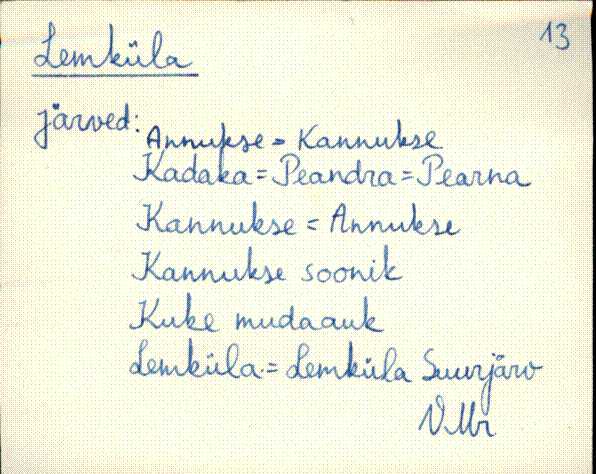 13
Lemküla
järved:
Annukse = Kannukse
Kadaka = Peandra = Pearna
Kannukse = Annukse
Kannukse soonik
Kuke mudaauk
Lemküla = Lemküla Suurjärv
V. Mr